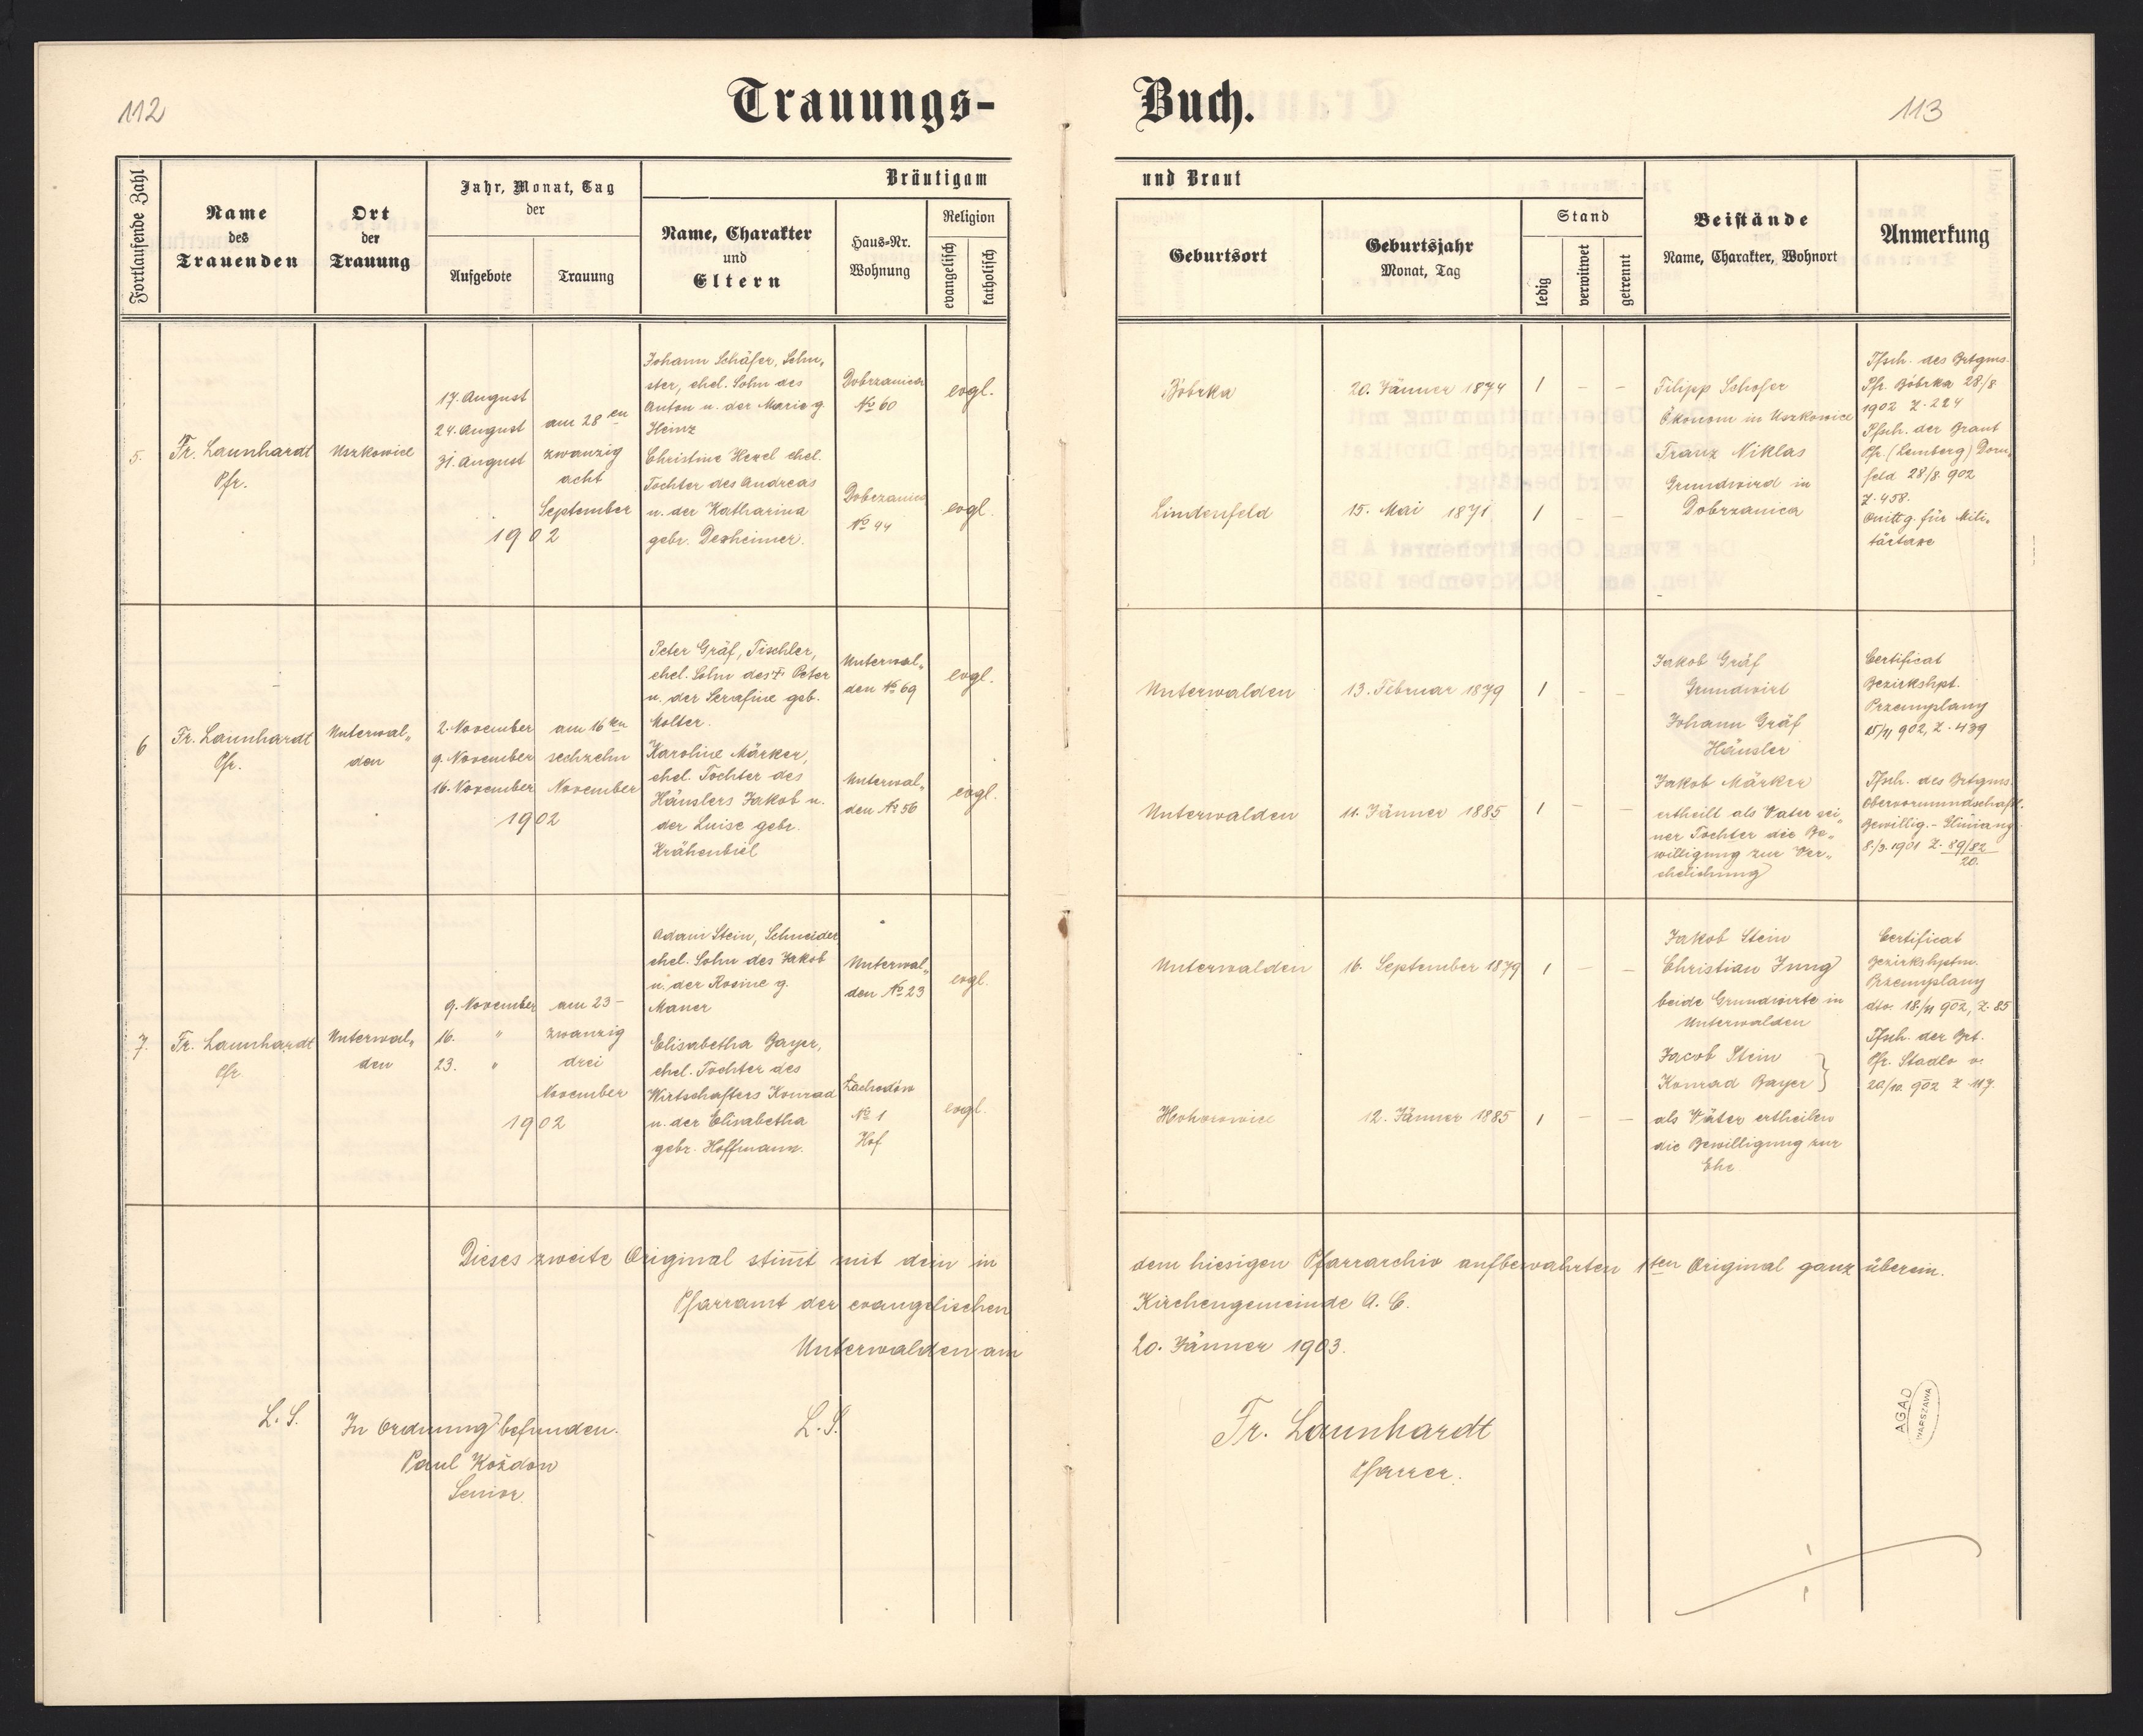 112
Trauungs-
Buch.
113
Fortlaufende Zahl
Name
des
Trauenden
Ort
der
Trauung
Jahr, Monat, Tag
der
Aufgebote
Trauung
Bräutigam
Name, Charakter
und
Eltern
Haus-Nr.
Wohnung
Religion
evangelisch
katholisch
und Braut
Geburtsort
Geburtsjahr
Monat, Tag
Stand
ledig
verwitwet
getrennt
Beistände
Name, Charakter, Wohnort
Anmerkung
5.
Fr. Launhardt
Pfr.
Uszkowice
17. August
24. August
31. August
am 28en
zwanzig
acht
September
1902
Johann Schäfer, Schu„
ster, ehel. Sohn des
Anton u. der Marie g.
Heinz
Christine Hexel ehel.
Tochter des Andreas
u. der Katharina
gebr. Dexheimer.
Dobrzanica
No 60
Dobrzanica
No 44
evgl.
evgl.
Bóbrka
20. Jänner 1874
1 – –
Lindenfeld
15. Mai 1871
1 – –
Filipp Schofer
Ökonom in Uszkowice
Franz Niklas
Grundwird in
Dobrzanica
Tfsch. des Brtgms.
Pfr. Bóbrka 28/8.
1902 Z. 224
Tfsch. der Braut
Pfr. (Lemberg) Dorn„
feld 28/8. 902
Z. 458.
Quittg. für Mili„
tärtaxe
6
Fr. Launhardt
Pfr.
Unterwal„
den
2. November
9. November
16. November
am 16ten
sechzehn
November
1902
Peter Gräf, Tischler,
ehel. Sohn des † Peter
u. der Serafine geb.
Molter.
Karoline Märker,
ehel. Tochter des
Häuslers Jakob u.
der Luise gebr.
Krähenbiel
Unterwal„
den No 69
Unterwal„
den No 56
evgl.
evgl.
Unterwalden
13. Februar 1879
1 – –
Unterwalden
11. Jänner 1885
1 – –
Jakob Gräf
Grundwirt
Johann Gräf
Häusler
Jakob Märker
ertheilt als Vater sei„
ner Tochter die Be„
willigung zur Ver„
ehelichung
Certificat
Bezirkshpt.
Przemyslany
15/11 902, Z. 439
Tfsch. des Brtgms.
Obervormundschaftl.
Bewillig. - Gliniany
8./3. 1901 Z. 89/82
20.
7.
Fr. Launhardt
Pfr.
Unterwal„
den
9. November
16. "
23. "
am 23 –
zwanzig
drei
November
1902
Adam Stein, Schneider
ehel. Sohn des Jakob
u. der Rosine g.
Maner
Elisabetha Bayer,
ehel. Tochter des
Wirtschafters Konrad
u. der Elisabetha
gebr. Hoffmann.
Unterwal„
den No 23
Lachodów
No 1
Hof
evgl.
evgl.
Unterwalden
16. September 1879
1 – –
12. Jänner 1885
1 – –
Jakob Stein
Christian Jung
beide Grundwirte in
Unterwalden
Jacob Stein
Konrad Bayer }
als Väter ertheilen
die Bewilligung zur
Ehe
Certificat
Bezirkshptm.
Przemyslany
dto. 18/11 902, Z. 85
Tfsch. der Brt.
Pfr. Stadlo v.
20/10. 902 Z. 117.
Dieses zweite Original stim̄t mit dem in
dem hiesigen Pfarrarchiv aufbewahrten 1ten Original ganz überein.
Pfarramt der evangelischen
Kirchengemeinde A. C.
Unterwalden am
20. Jänner 1903.
L. S.
In Ordnung befunden.
Paul Kożdon
Senior.
L. S.
Fr. Launhardt
Pfarrer.
AGAD
WARSZAWA